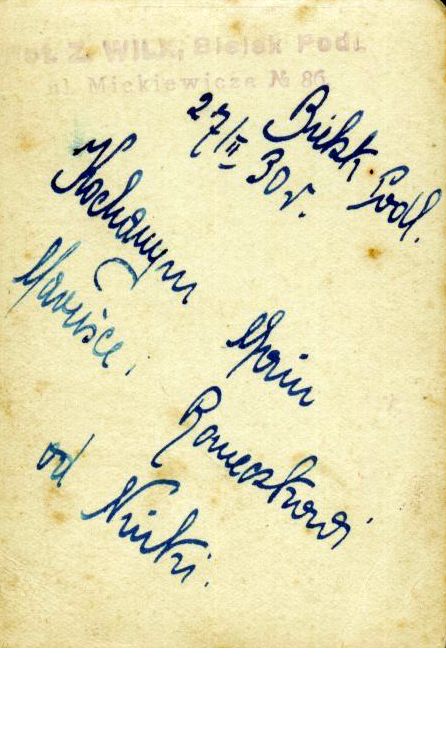 Fot. Z. WILK, Bielsk Podl.
ul. Mickiewicza № 86
Bielsk. Podl.
27/II 30 r.
Kochanym
Marysce,
od Ninki.